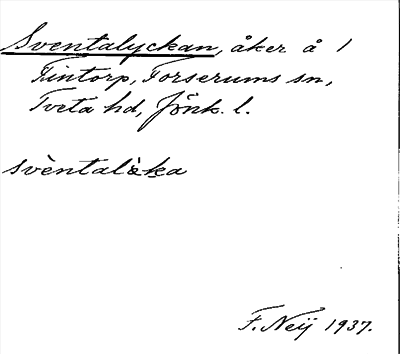 Sventalyckan, åker å 1
Tintorp, Forserums sn,
Tveta hd, Jönk. l.
svèntalỳka
F. Neij 1937.